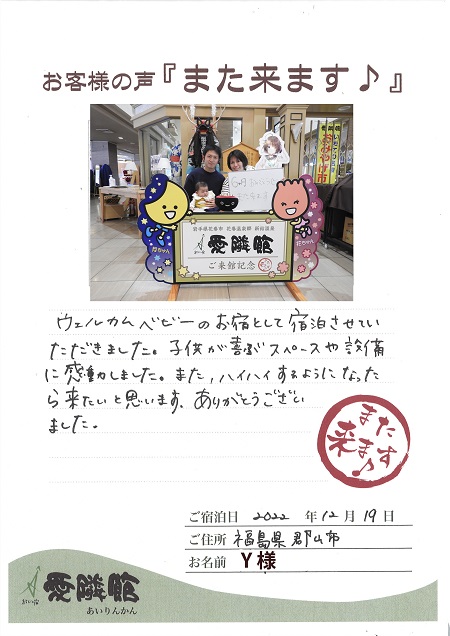 お客様の声『また来ます♪』
おみやげ市
岩手県花巻市 花巻温泉郷 新鉛温泉
愛隣館
ご来館記念
ウェルカムベビーのお宿として宿泊させてい
ただきました。子供が喜ぶスペースや設備
に感動しました。また、ハイハイするようになった
ら来たいと思います。ありがとうござい
ました。
またす
来ま♪
ご宿泊日 2022 年 12 月 19 日
ご住所 福島県郡山市
お名前 Y様
愛隣館
あいりんかん